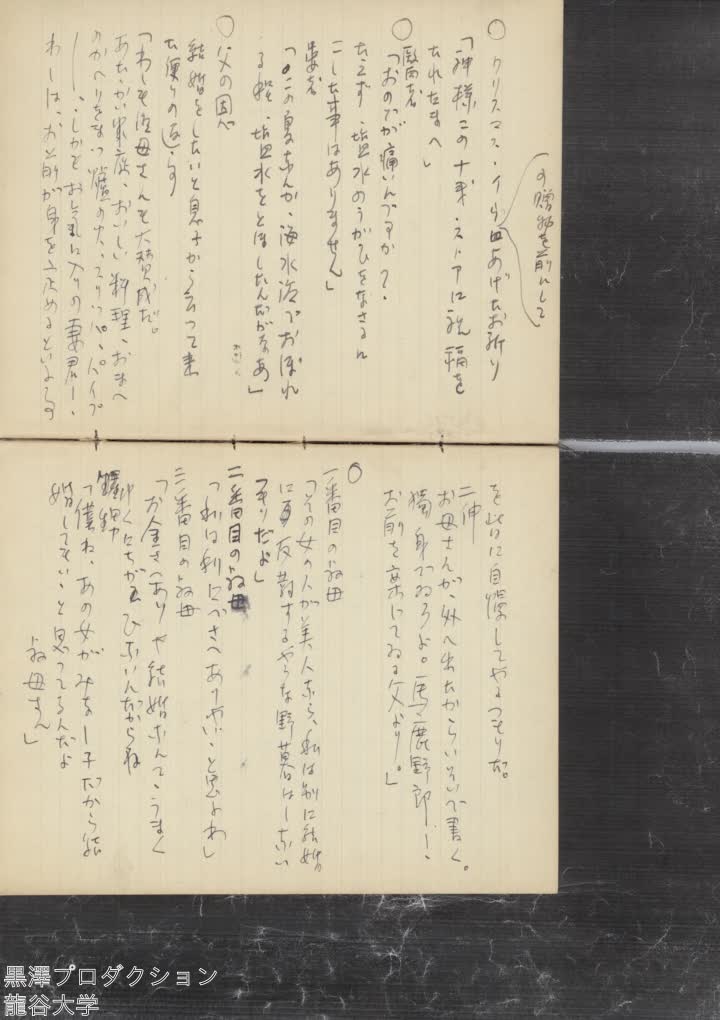 (の贈物を前にして)
○クリスマス・イヴに皿あげたお祈り
「神様この十求・ストアに祝福を
たれたまへ」
○醫者
「おのどが痛いんですか?
たえず・塩水のうがひをなさるに
こした事はありません」
患者
「この夏なんか、海水浴でおぼれ
る程・塩水をとほしたんだがなあ」
○父の恩
結婚をしたいと息子から云って来
た便りの返事
「わしも母さんも大賛成だ。
あたゝかい家庭、おいしい料理、おまへ
のかへりをまつ爐の火、スリッパ、パイプ
しかもお気に入りの妻君ー・
わしは、お前が身を立めるといふ
を皆に自慢してやるつもりだ。
二伸
お母さんが、外へ出たからいそいで書く。
獨身でゐろよ。馬鹿野郎ー・
お前を案じてゐる父より。」
○
一番目の叔母
「その女の人が美人なら、私は別に結婚
に反對するやうな野暮はしない
つもりだよ」
二番目の叔母
「私は利口でさへありやいゝと思ふわ」
三番目の叔母
「お金さへありや結婚なんて・うまく
ゆくにちがひないんだからね
「僕ね、あの女がみなし子だから結
婚してもいゝと思ってるんだよ
叔母さん」
黒澤プロダクション
龍谷大学